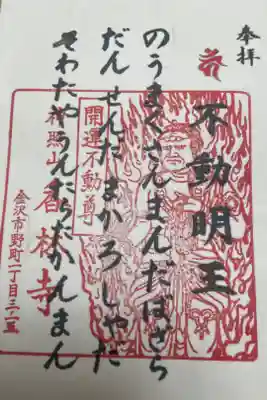 奉拝
不動明王
のうまくさんまんだばざら
だんせんだまかろしゃだ
そわたやうんたらだかんまん
開運不動尊
祥照山
香林寺
金沢市野町一丁目三-一五